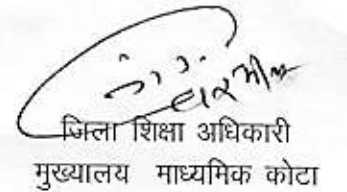 जिला शिक्षा अधिकारी
मुख्यालय माध्यमिक कोटा